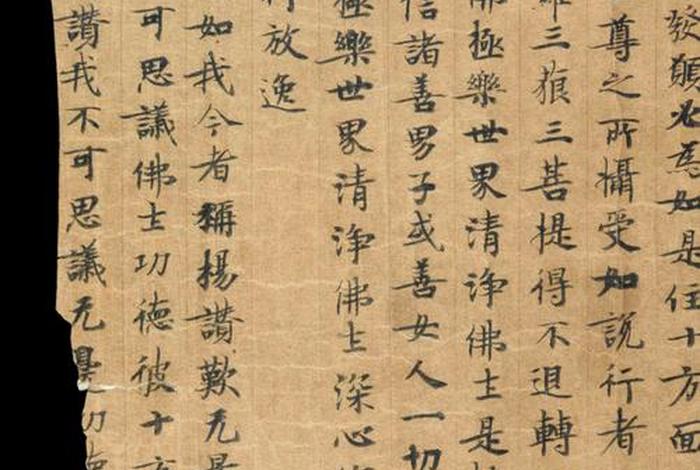 發願必為如是住十方面
尊之所攝受如說行者
三藐三菩提得不退轉
佛極樂世界清淨佛土是
信諸善男子或善女人一切
極樂世界清淨佛土深心
放逸
如我今者稱揚讚歎无量
可思議佛土功德彼十方
讚我不可思議无量功德